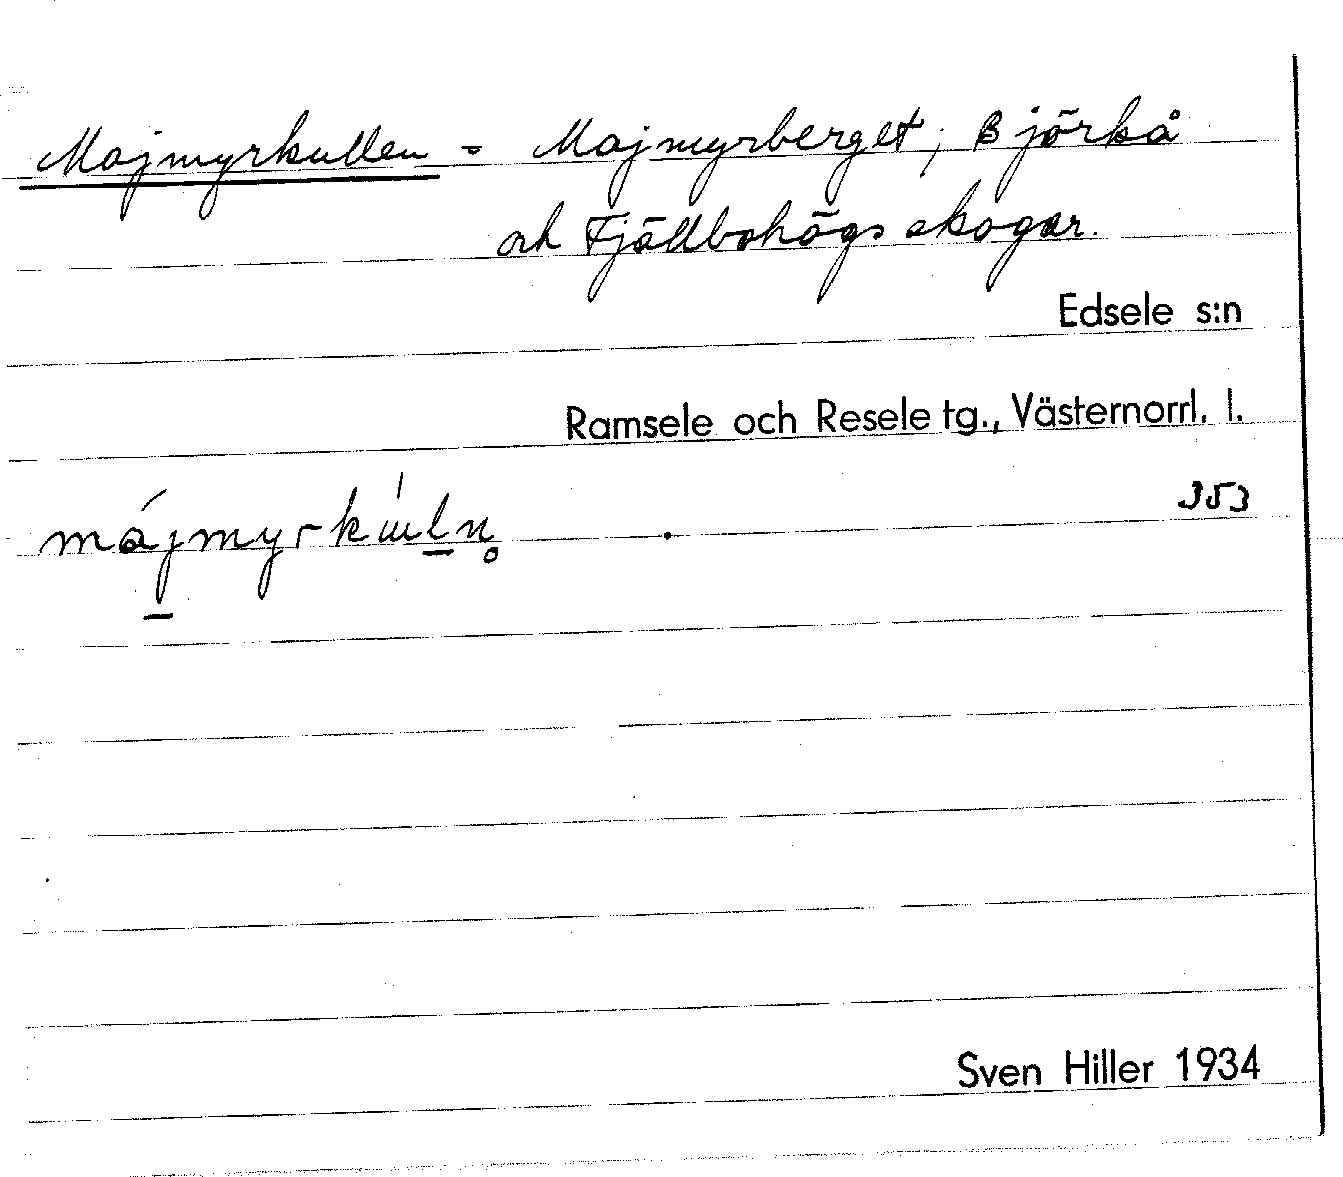 Majmyrkullen = Majmyrberget; Björkå
och Fjällbohögs skogar.
Edsele s:n
Ramsele och Resele tg., Västernorrl. l.
353
Sven Hiller 1934